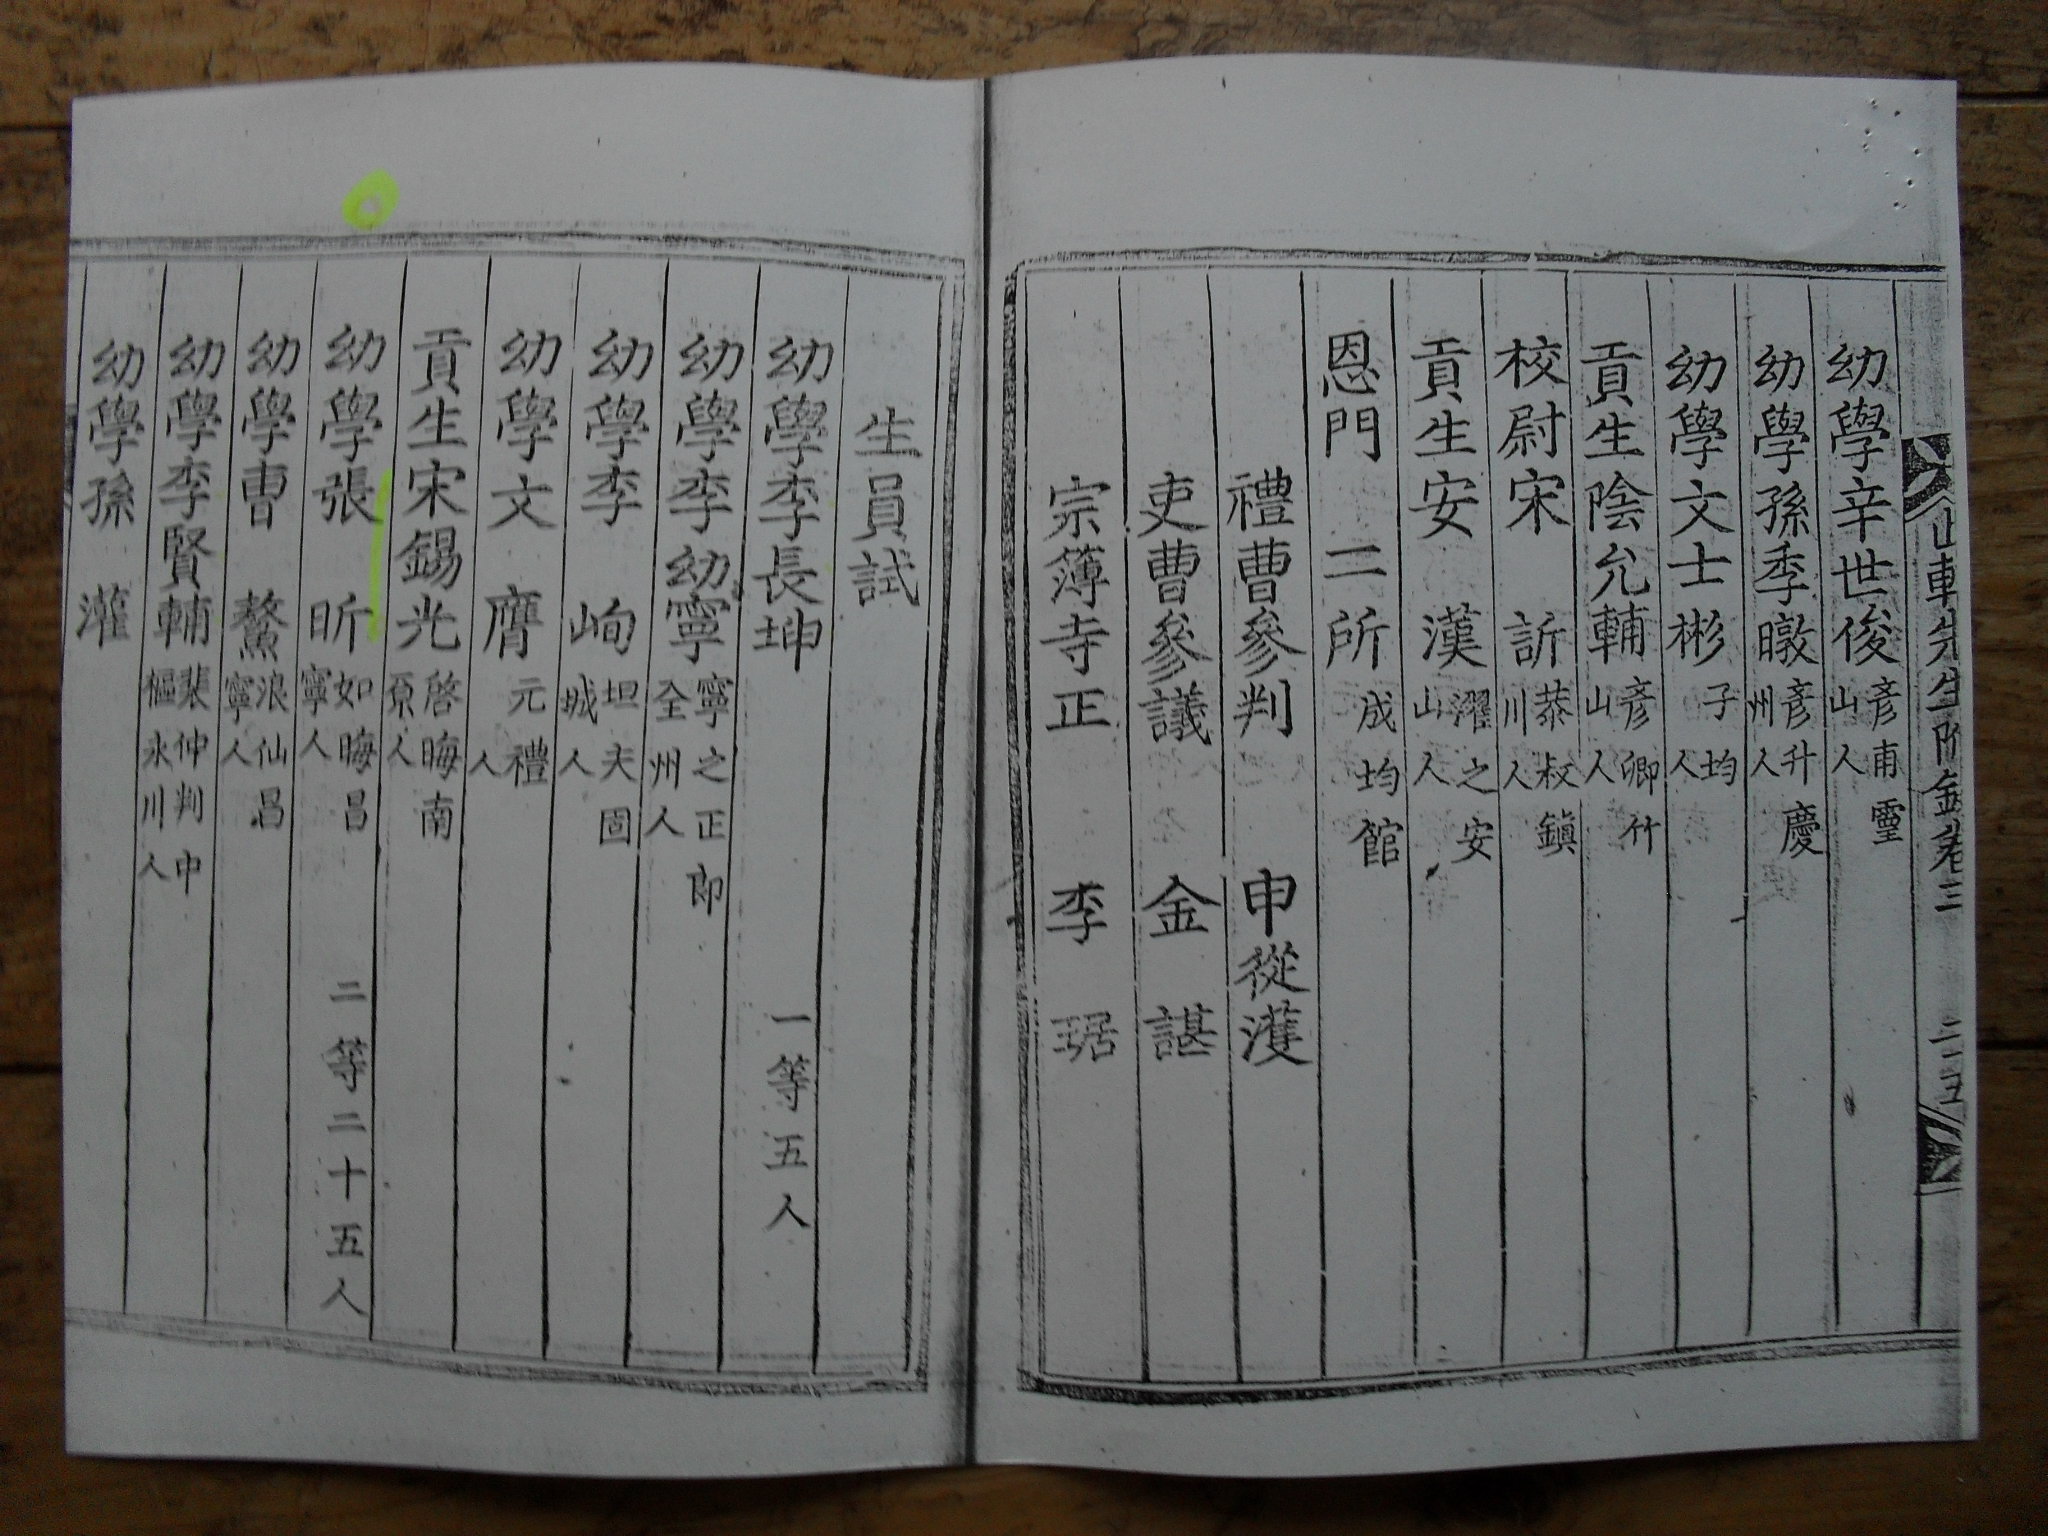 先生附錄卷三 二十五
幼學辛世俊 彦甫靈山人
幼學孫季暾 彦升慶州人
幼學文士彬 子均人
貢生陰允輔 彦卿竹山人
校尉宋 訢 恭叔鎭川人
貢生安 漢 濯之安山人
恩門 二所 成均館
禮曹參判 申從濩
吏曹參議 金 諶
宗簿寺正 李 琚
生員試
幼學李長坤 一等五人
幼學李幼寧 寧之正郎全州人
幼學李 峋 坦夫固城人
幼學文 膺 元禮人
貢生宋錫光 啓晦南原人
幼學張 昕 如晦昌寧人 二等二十五人
幼學曺 鰲 浪仙昌寧人
幼學李賢輔 棐仲判中樞永川人
幼學孫 灌